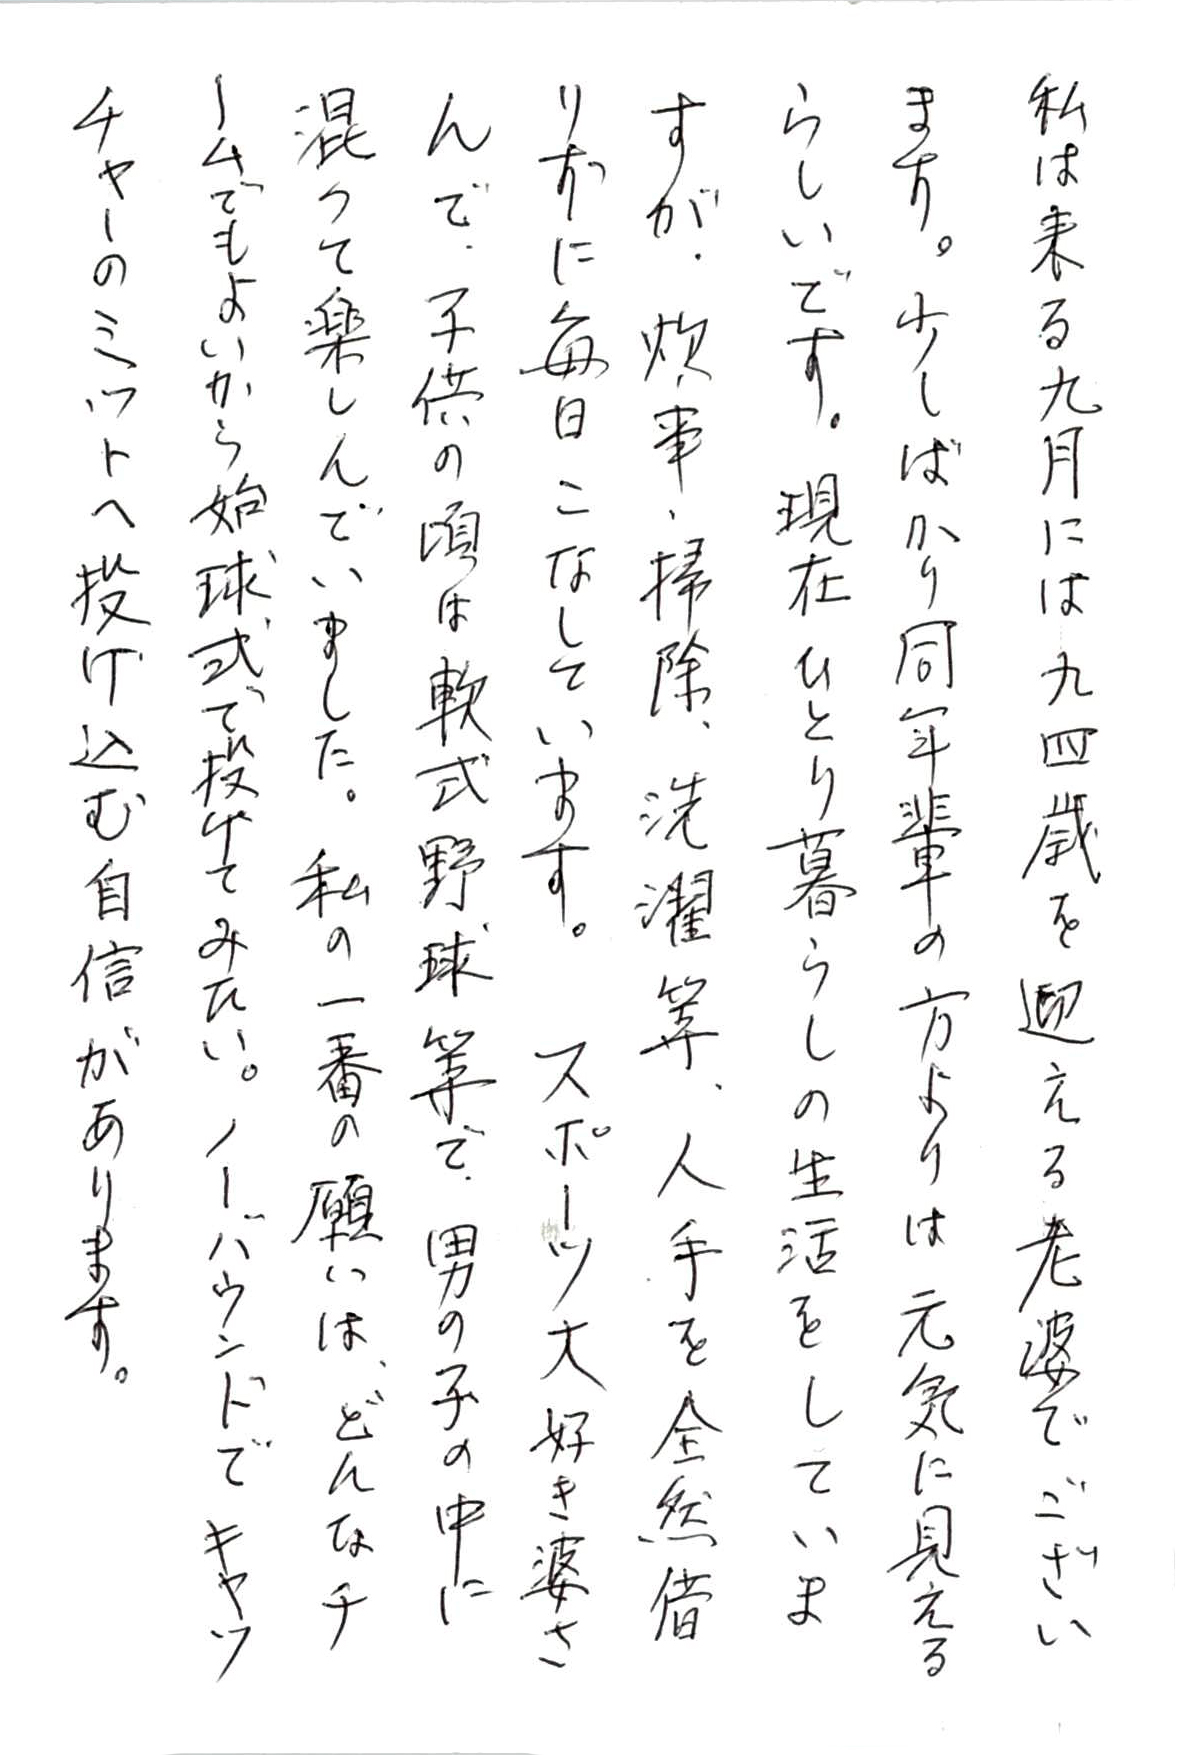 私は来る九月には九四歳を迎える老婆でござい
ます。少しばかり同年輩の方よりは元気に見える
らしいです。現在ひとり暮らしの生活をしていま
すが、炊事、掃除、洗濯等、人手を全然借
りずに毎日こなしています。スポーツ大好き婆さ
んで、子供の頃は軟式野球等で、男の子の中に
混って楽しんでいました。私の一番の願いは、どんなチ
ームでもよいから始球式で投げてみたい。ノーバウンドでキャッ
チャーのミットへ投げ込む自信があります。